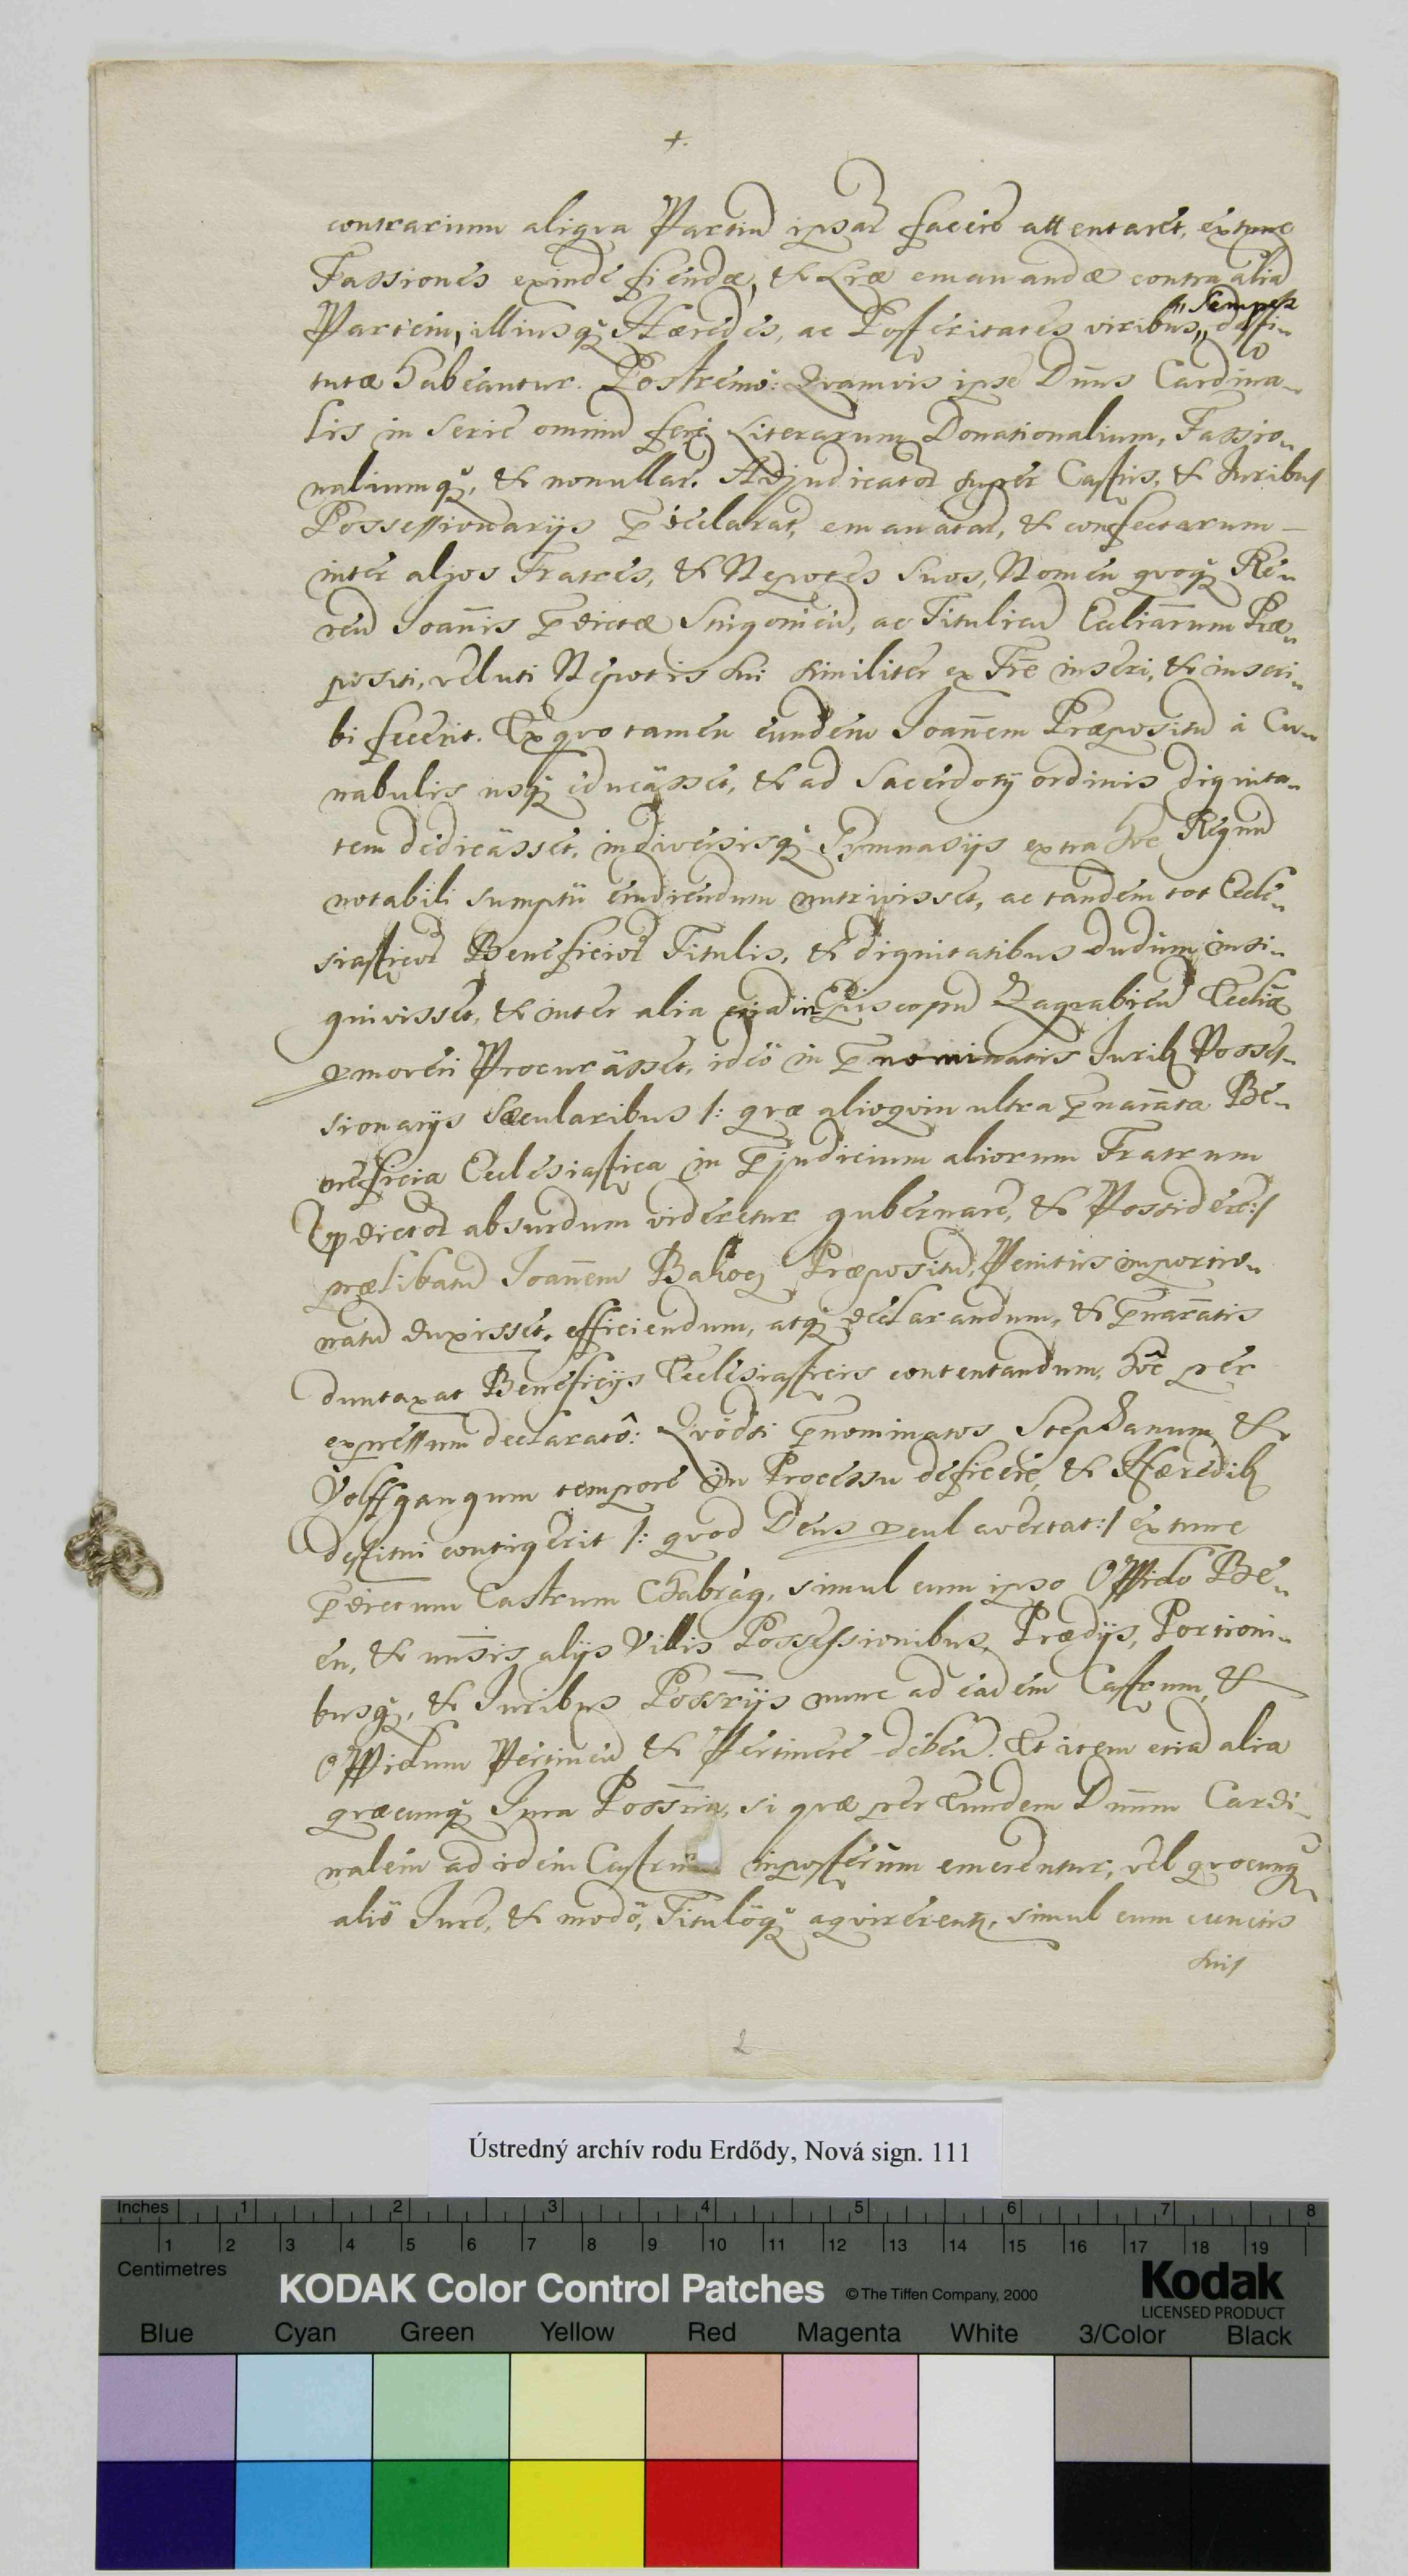 +.
contrarium aliqua Partiũ ipsaꝝ facere attentaret, extunc
Fassiones exinde fiendæ, & Lr̃æ emanandæ contra aliã
Partem, illiusq̷ Hæredes, ac Posteritates viribus „ semper „ desti„
tutæ habeantur. Postremò: Qvamvis ipse Dñus Cardina„
lis in serie omniũ ferè Literarum Donationalium, Fassio„
naliumq̷, & nonullaꝝ Adjudicatoꝝ super Castris, & Juribus
Possessionarijs p̄declarat, emanataꝝ, & confectarum
inter alios Fratres, & Nepotes suos, Nomen qvoq̷ Re„
vereñ Joan̄nis p̄dictæ Strigonieñ, ac Titulicũ Eccliarum Præ„
positi, veluti Nepotis sui similiter ex Fr̃e inseri, & inscri„
bi fecerit. Ex qvo tamen eundem Joan̄nem Præpositũ à Cu„
nabulis usq̷ educâsset, & ad Sacerdotÿ ordinis dignita„
tem dedicâsset, in diversisq̷ Gymnasijs extra hoc Regnũ
notabili sumptu erudiendum nutrivisset, ac tandem tot Eccle„
siasticoꝝ Beneficioꝝ Titulis, & dignitatibus dudum insi„
gnivisset, & inter alia etiã in Episcopũ Zagrabieñ Eccliæ
ꝓmoveri Procurâsset, ideò in p̄nominatis Juribꝫ Posses„
sionarijs sæcularibus /: qvæ alioqvin ultra p̄narrata Be„
neficia Ecclesiastica in p̄judicium aliorum Fratrum
p̄dictoꝝ absurdum videretur gubernare, & Possidere:/
prælibatũ Joan̄nem Bakocz Præpositũ, Penitus importio„
natũ duxisset, efficiendum, atq̷ declarandum, & p̄narratis
duntaxat Beneficijs Ecclesiasticis contentandum, hôc per
expressum declaratô: Qvòdsi p̄nominatos Stephanum, &
Volffgangum tempore in Processu deficere, & Hæredibꝫ
destitui contigerit /: qvod Deus ꝓcul avertat:/ extunc
p̄dictum Castrum Chabrág, simul cum ipso Oppido Be„
én, & universis alijs Villis Possessionibus, Prædijs, Portioni„
busq̷, & Juribus Possrijs nunc ad eadem Castrum, &
Oppidum Pertineñ & Pertinere debeñ. Et item etiã alia
qvæcunq̷ Jura Possria, si qvæ per Eundem Dñum Cardi„
nalem ad idem Castrum imposterùm emerentur, vel qvocunq̷
aliô Jure, & modô, Titulôq̷ aqvirerentꝰ, simul cum cunctis
suis
2
Ústredný archív rodu Erdődy, Nová sign. 111
Inches 1 2 3 4 5 6 7 8
1 2 3 4 5 6 7 8 9 10 11 12 13 14 15 16 17 18 19
Centimetres
KODAK Color Control Patches © The Tiffen Company, 2000 Kodak
LICENSED PRODUCT
Blue Cyan Green Yellow Red Magenta White 3/Color Black